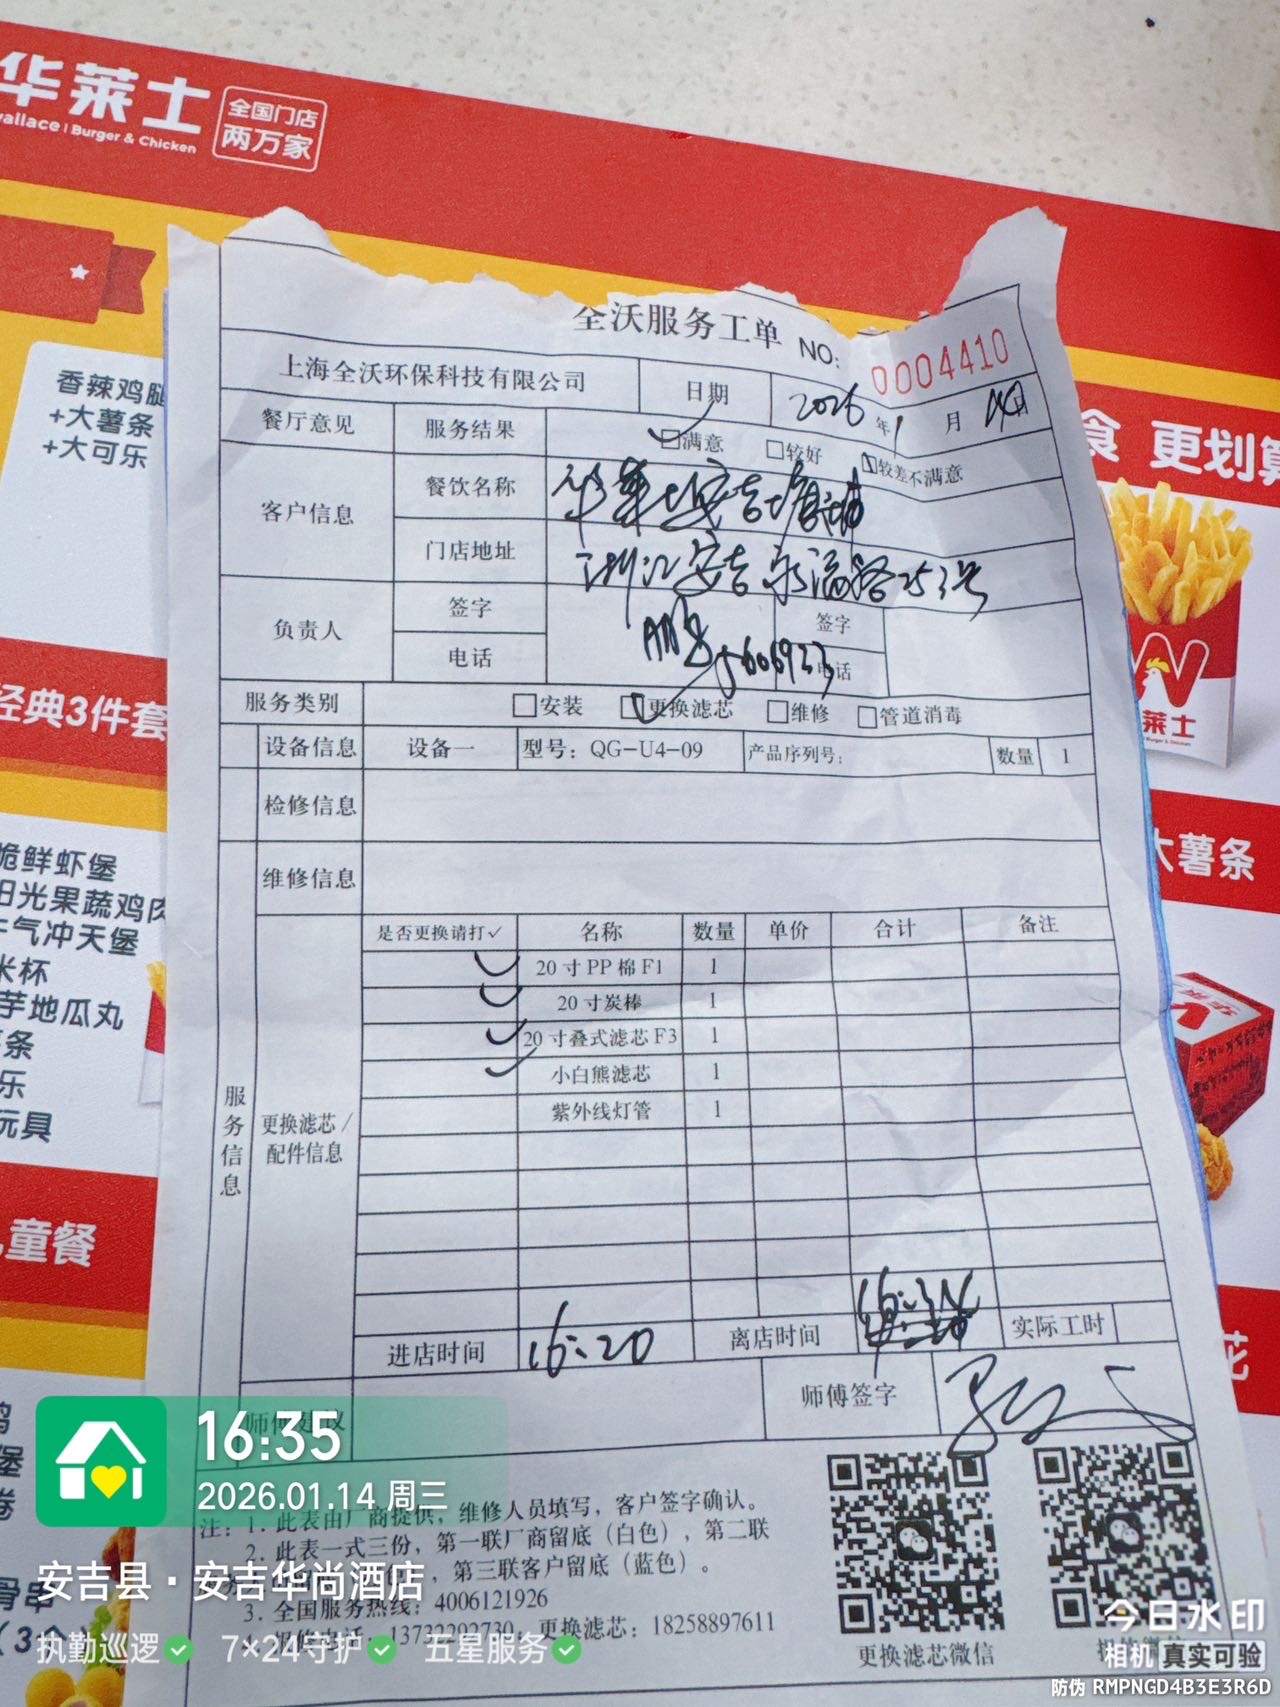 华莱士
全国门店
两万家
Burger & Chicken
香辣鸡腿
+大薯条
+大可乐
食 更划算
全沃服务工单 NO: 0004410
上海全沃环保科技有限公司 日期 2026 年 1 月 14 日
餐厅意见 服务结果 满意 较好 较差不满意
客户信息 餐饮名称
门店地址 浙江安吉 路253号
负责人 签字 签字
电话 电话
服务类别 安装 更换滤芯 维修 管道消毒
经典3件套
设备信息 设备一 型号：QG-U4-09 产品序列号： 数量 1
莱士
检修信息
维修信息
大薯条
脆鲜虾堡
阳光果蔬鸡肉
气冲天堡
米杯
芋地瓜丸
薯条
乐
玩具
是否更换请打✓ 名称 数量 单价 合计 备注
✓ 20寸PP棉F1 1
✓ 20寸炭棒 1
✓ 20寸叠式滤芯F3 1
✓ 小白熊滤芯 1
紫外线灯管 1
服务信息
更换滤芯/
配件信息
童餐
进店时间 16:20 离店时间 实际工时
师傅建议 师傅签字
16:35
2026.01.14 周三
注：1. 此表由厂商提供，维修人员填写，客户签字确认。
2. 此表一式三份，第一联厂商留底（白色），第二联
，第三联客户留底（蓝色）。
3. 全国服务热线：4006121926
13732292730 更换滤芯：18258897611
更换滤芯微信
安吉县·安吉华尚酒店
执勤巡逻 7×24守护 五星服务
今日水印
相机 真实可验
防伪 RMPNGD4B3E3R6D